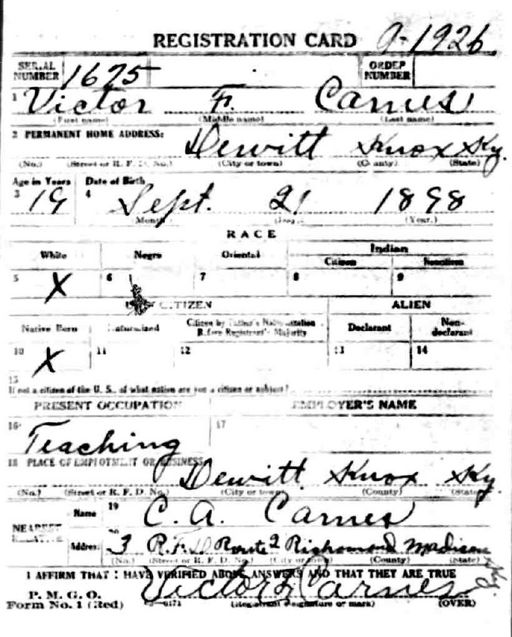 REGISTRATION CARD A-1926
SERIAL NUMBER 1675 ORDER NUMBER
1 Victor F. Carnes
(First name) (Middle name) (Last name)
2 PERMANENT HOME ADDRESS:
Dewitt Knox Ky.
(No.) (Street or R. F. D. No.) (City or town) (County) (State)
Age in Years Date of Birth
3 19 4 Sept. 21 1898
(Month.) (Day.) (Year.)
RACE
White Negro Oriental Indian
Citizen Noncitizen
5 X 6 7 8 9
U. S. CITIZEN ALIEN
Native Born Naturalized Citizen by Father's Naturalization Before Registrant's Majority Declarant Non-declarant
10 X 11 12 13 14
15
If not a citizen of the U. S., of what nation are you a citizen or subject?
PRESENT OCCUPATION EMPLOYER'S NAME
16 Teaching 17
18 PLACE OF EMPLOYMENT OR BUSINESS
Dewitt Knox Ky.
(No.) (Street or R. F. D. No.) (City or town) (County) (State)
NEAREST RELATIVE
Name 19 C. A. Carnes
Address 3 R.F.D Route 2 Richmond Madison Ky
(No.) (Street or R. F. D. No.) (City or town) (County) (State)
I AFFIRM THAT I HAVE VERIFIED ABOVE ANSWERS AND THAT THEY ARE TRUE
P. M. G. O.
Form No. 1 (Red) Victor F. Carnes
(Registrant's signature or mark) (OVER)